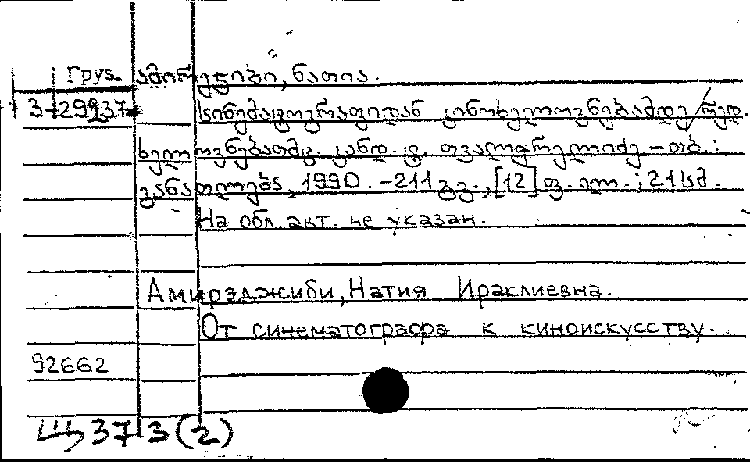 Груз. ამირეჯიბი, ნათია.
3-29937 სინემატოგრაფიდან კინოხელოვნებამდე / რედ.
ხელოვნებათმც. კანდ. გ. თვალჭრელიძე – თბ. :
განათლება, 1990. – 211 გვ., [12] ფ. ილ. ; 21 სმ.
На обл. авт. не указан.
Амирэджиби, Натия Ираклиевна.
От синематографа к киноискусству.
92662
Щ37 3(2)